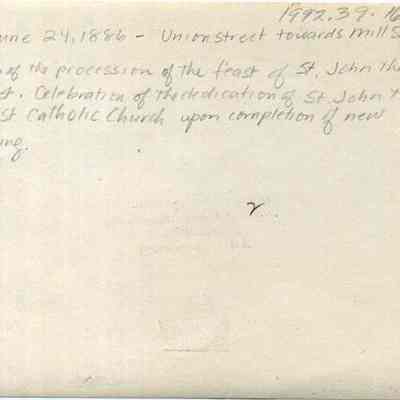 1992.39.16
une 24, 1886 - Union street towards Mill S
of the procession of the feast of St. John the
st. Celebration of the dedication of St John t
st Catholic Church upon completion of new
ing.
2